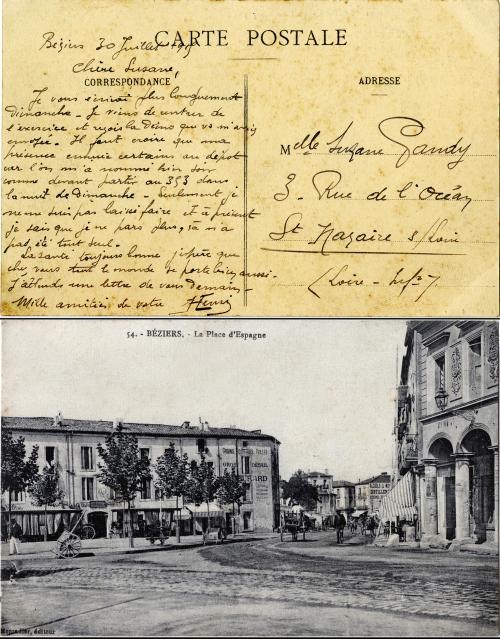 CARTE POSTALE
Béziers 30 Juillet 1915
Chère Suzane,
CORRESPONDANCE
ADRESSE
Je vous écrirai plus longuement
dimanche - Je viens de rentrer de
l'exercice et reçois la que vs m'avez
envoyée. Il faut croire que ma
présence ennuie certains au dépôt
car l'on m'a nommé hier soir
comme devant partir au 353 dans
la nuit de Dimanche - Seulement je
ne me suis pas laissé faire et à présent
je sais que je ne pars plus, ça n'a
pas été tout seul.
La santé toujours bonne, j'espère que
chez vous tout le monde se porte bien aussi.
J'attends une lettre de vous demain.
Mille amitiés de votre Henri
Melle Suzane Gandy
3 - Rue de l'Océan
St Nazaire s/Loire
(Loire - Infre)
54. - BÉZIERS. - La Place d'Espagne
éditeur